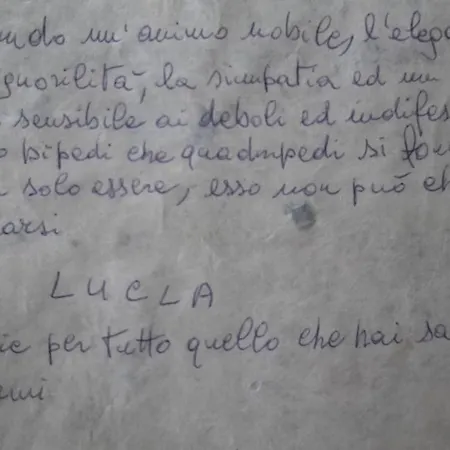 ndo un'animo nobile, l'elega
gnorilità, la simpatia ed un
sensibile ai deboli ed indifes
o bipedi che quadrupedi si fon
solo essere, esso non può ch
arsi
LUCIA
ie per tutto quello che hai sa
emi